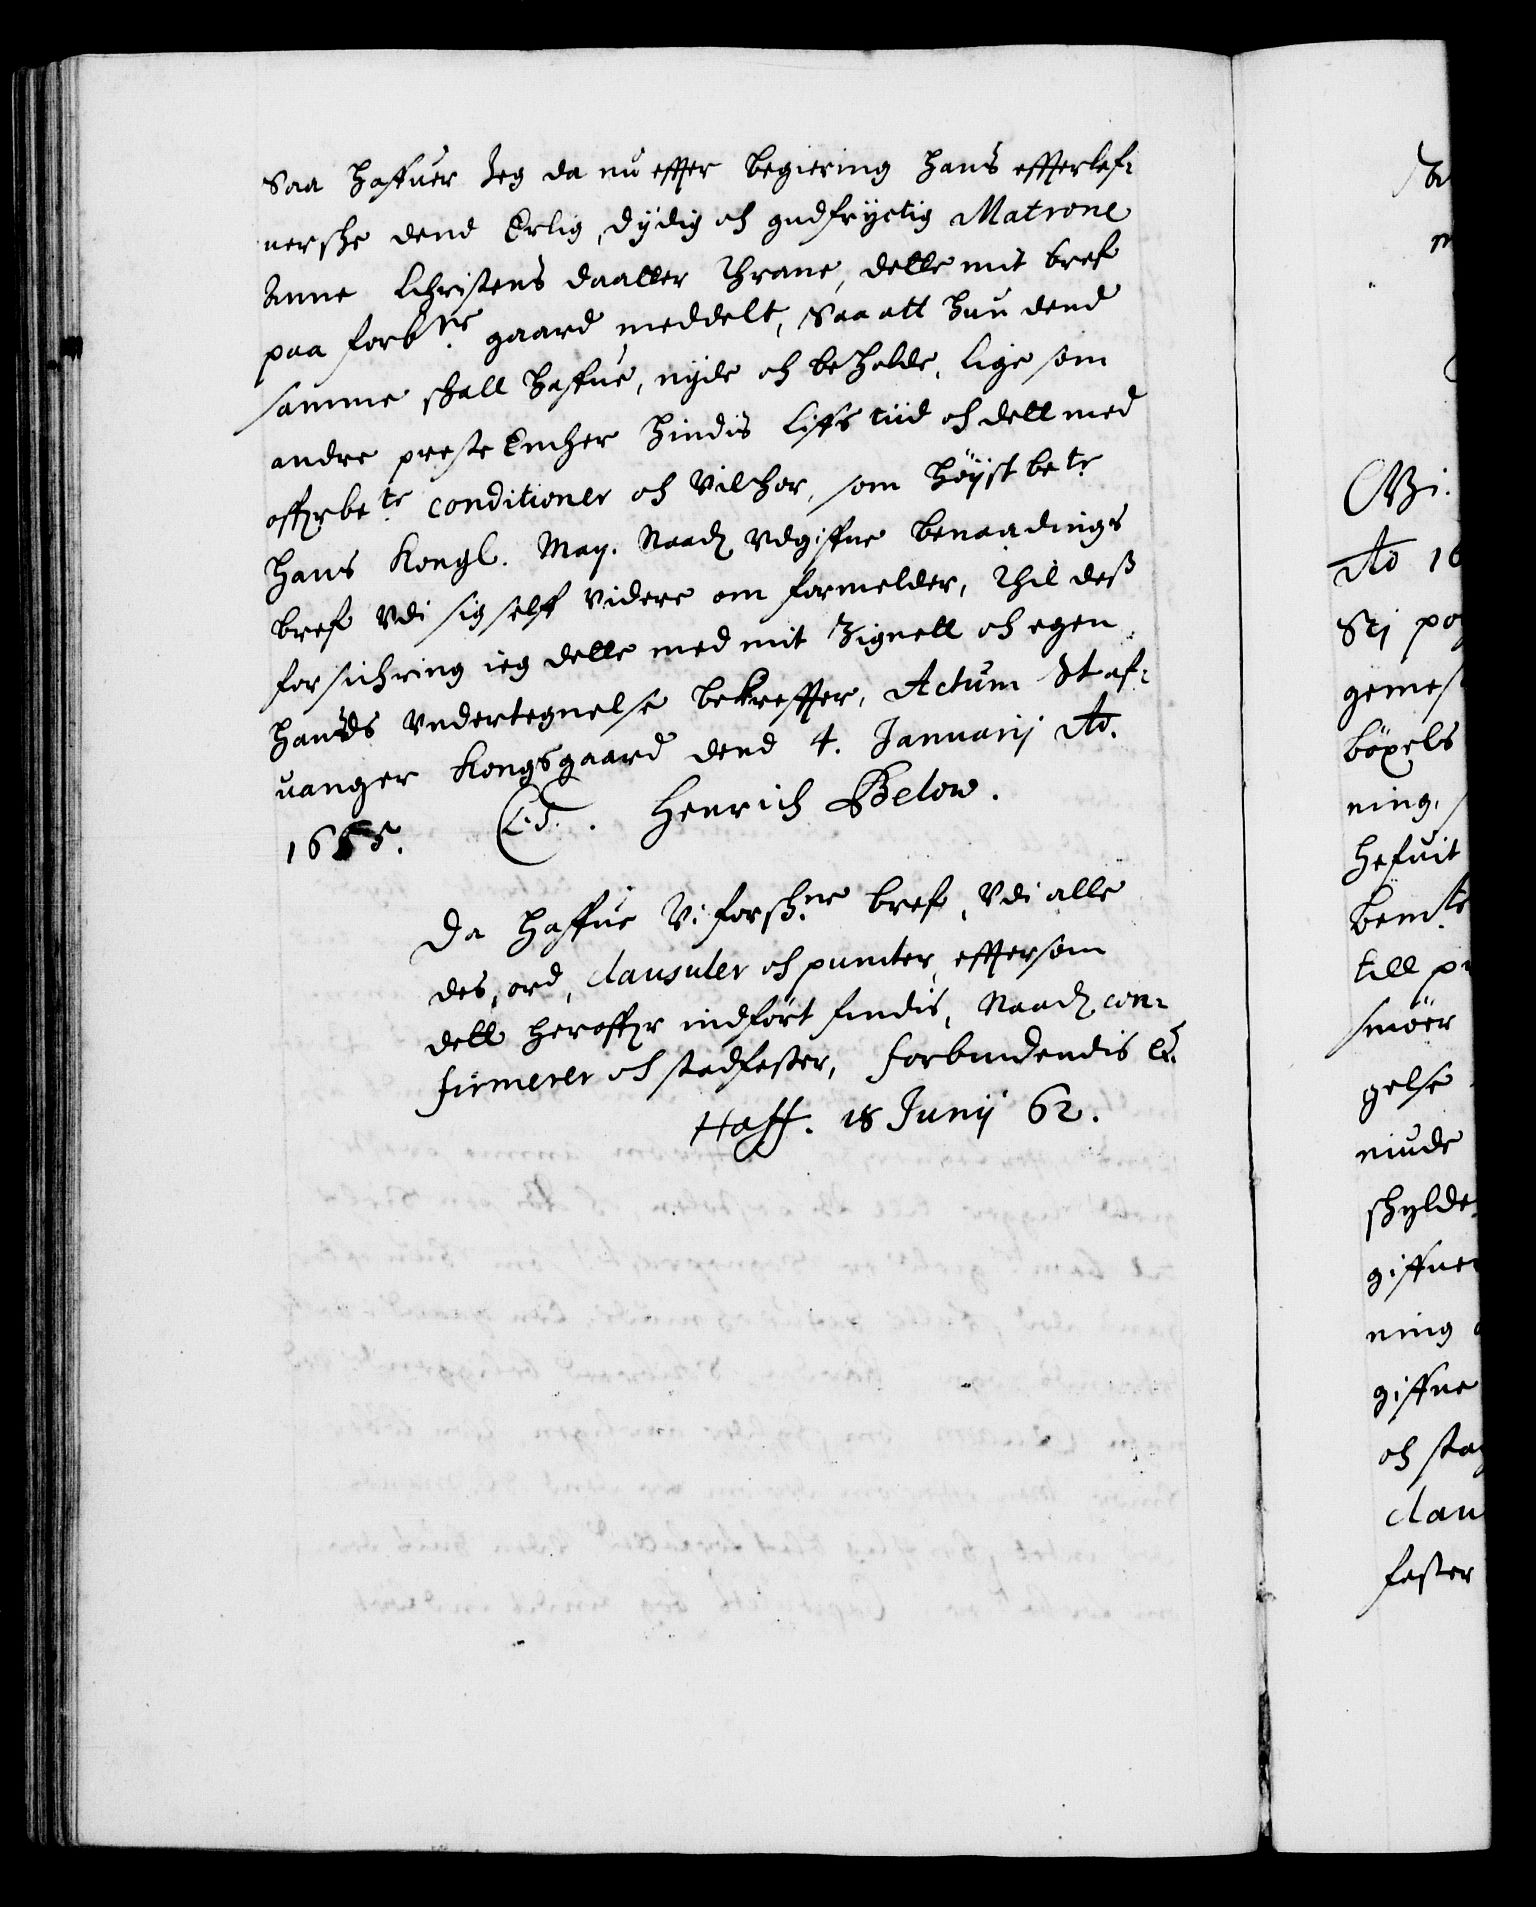 Saa Haffuer Jeg da nu effter begiering hans effterlef:
uerske dend Erlig, dydig och gudfryctig Matrone
Anne Christens daatter Thrane, dette mit bref
paa forbne gaard meddelt, Saa att hun dend
samme skall haffue, nyde och beholde, lige som
andre preste Encher hindis Liffs tiid och dett med
offuerbete conditioner och Vilchor, som Høystbete
Hans Kongl. May. Naad: udgiffne benaadings
bref udi sig self videre om formelder, Thil dess
forsichring ieg dette med mit Zignett och egen
hands undertegnelse bekreffter, Actum Staf:
uanger Kongsgaard dend 4. Januarij Ao.
1665. LS. Henrich Below.
Da Haffue Vi forskne bref, udi alle
des, ord, clausuler och puncter, effter som
dett heroffuer indført findis, Naad: con:
firmerer och stadfester, forbindendis etc.
Haff. 18 Junij 62.
Ao 16
gemes
böxels
ning,
bemte
till
smöer
gelse
niude
skylde
giffuer
ning
giffne
och sta
clau
fester